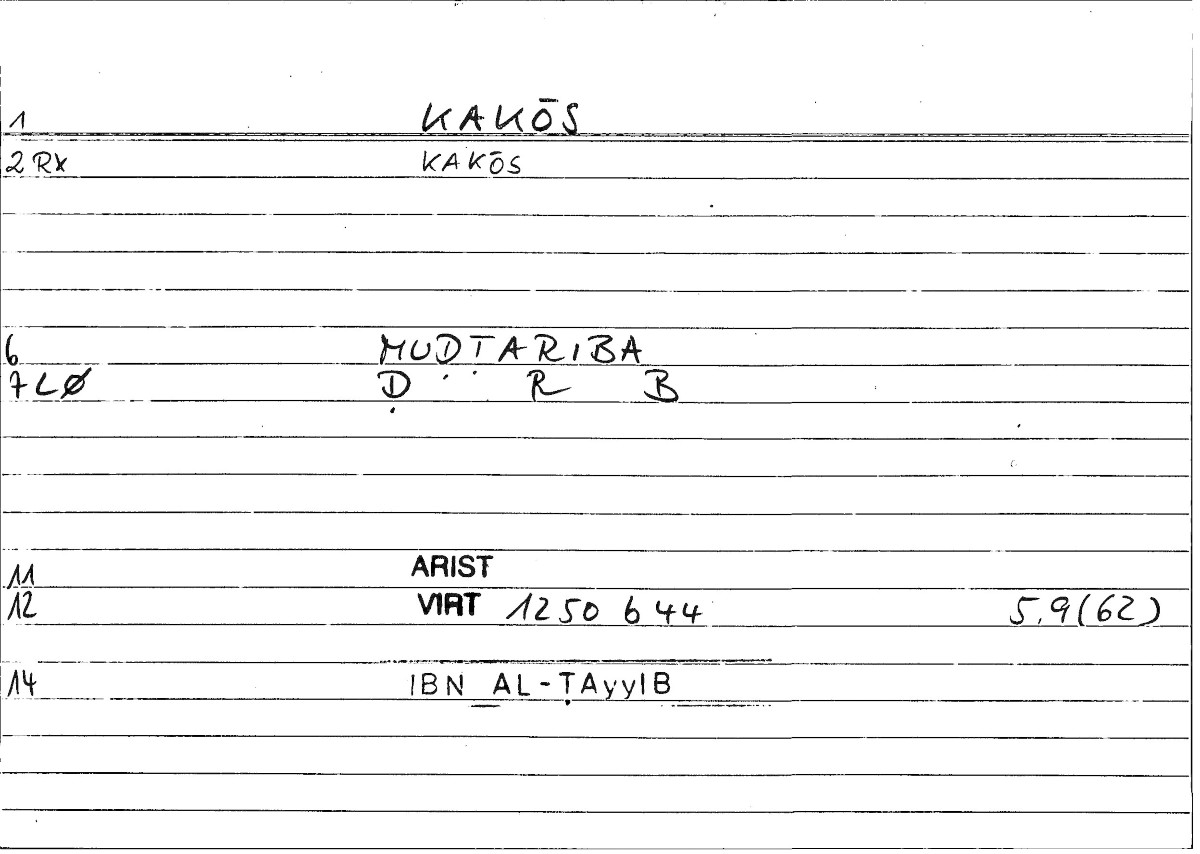 1 KAKŌS
2 RX KAKŌS
6 MUḌṬARIBA
7 LØ Ḍ R B
11 ARIST
12 VIRT 1250 b 44 5.9(62)
14 IBN AL-ṬAyyIB